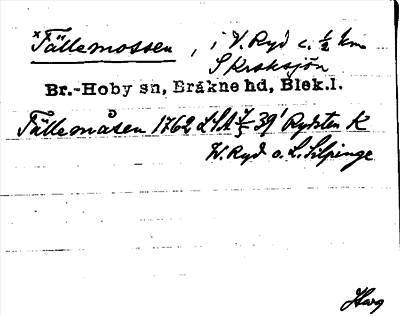 *Fällemossen, i V. Ryd c. ½ km
S Kroksjön
Br.-Hoby sn, Bräkne hd, Blek.l.
Fällemåsen 1762 LSA 39 Rydsten K
W. Ryd o. L. Silpinge
Harg